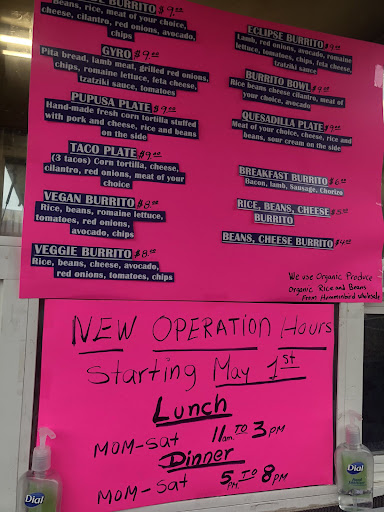 BURRITO $9.00
Beans, rice, meat of your choice,
cheese, cilantro, red onions, avocado,
chips
GYRO $9.00
Pita bread, lamb meat, grilled red onions,
chips, romaine lettuce, feta cheese,
tratziki sauce, tomatoes
PUPUSA PLATE $9.00
Hand-made fresh corn tortilla stuffed
with pork and cheese, rice and beans
on the side
TACO PLATE $9.00
(3 tacos) Corn tortilla, cheese,
cilantro, red onions, meat of your
choice
VEGAN BURRITO $8.00
Rice, beans, romaine lettuce,
tomatoes, red onions,
avocado, chips
VEGGIE BURRITO $8.00
Rice, beans, cheese, avocado,
red onions, tomatoes, chips
ECLIPSE BURRITO $9.00
Lamb, red onions, avocado, romaine
lettuce, tomatoes, chips, feta cheese,
tratziki sauce
BURRITO BOWL $9.00
Rice beans cheese cilantro, meat of
your choice, avocado
QUESADILLA PLATE $9.00
Meat of your choice, cheese, rice and
beans, sour cream on the side
BREAKFAST BURRITO $6.00
Bacon, lamb, Sausage, Chorizo
RICE, BEANS, CHEESE $5.00
BURRITO
BEANS, CHEESE BURRITO $4.00
We use Organic Produce
Organic Rice and Beans
From Hummingbird Wholesale
NEW OPERATION Hours
Starting May 1st
Lunch
MOM-Sat 11am TO 3PM
Dinner
MOM-Sat 5PM TO 8PM
Dial
Dial